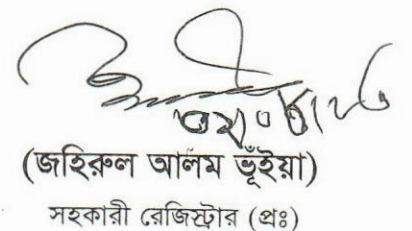 (জহিরুল আলম ভূঁইয়া)
সহকারী রেজিস্ট্রার (প্রঃ)